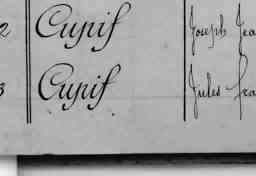 2 Cupif Joseph Jea
3 Cupif Jules Fra